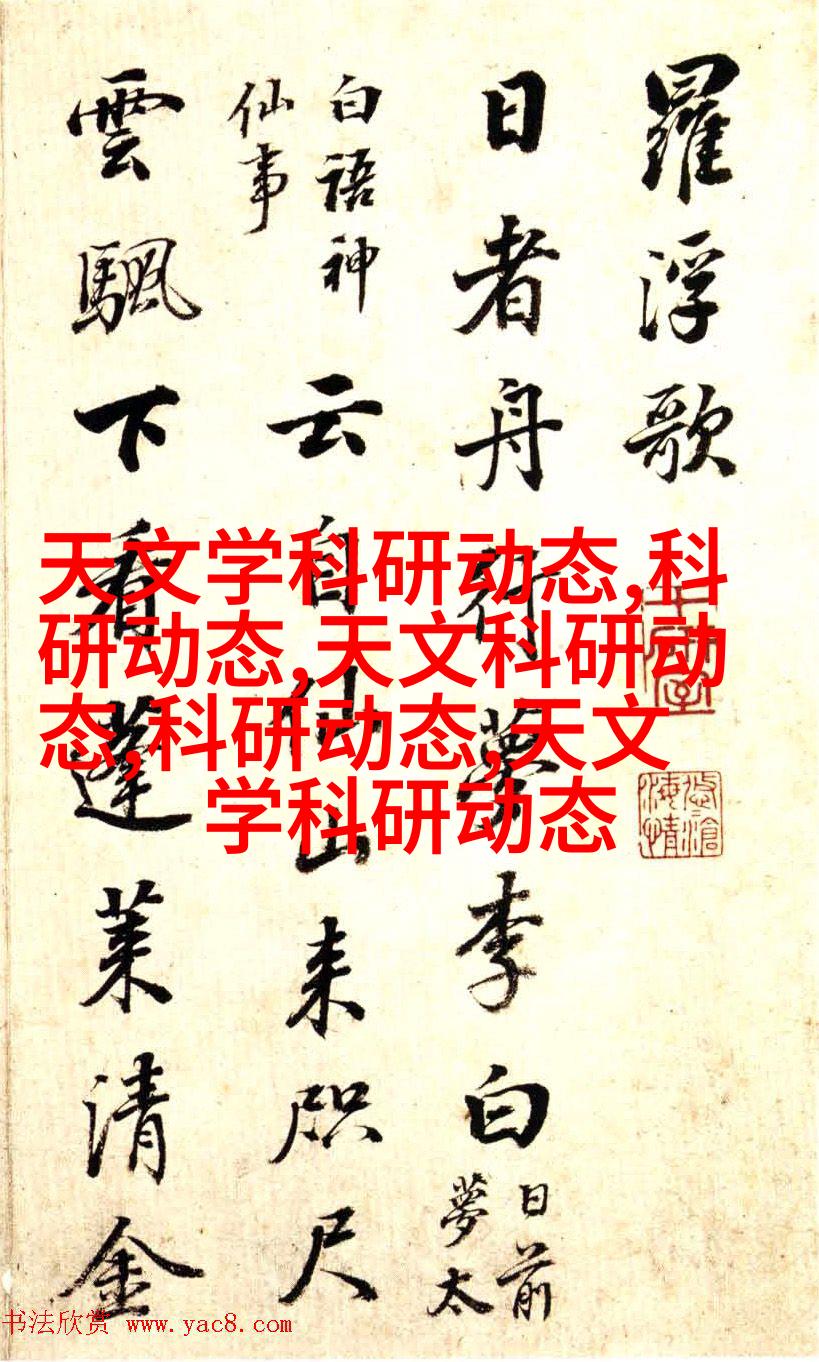 羅浮歌
日者舟行夢李白
日前
夢太
白語神
仙事
云自仙山来咫尺
雲颿下看蓬莱清金
天文学科研动态,科
研动态,天文科研动
态,科研动态,天文
学科研动态
书法欣赏 www.yac8.com